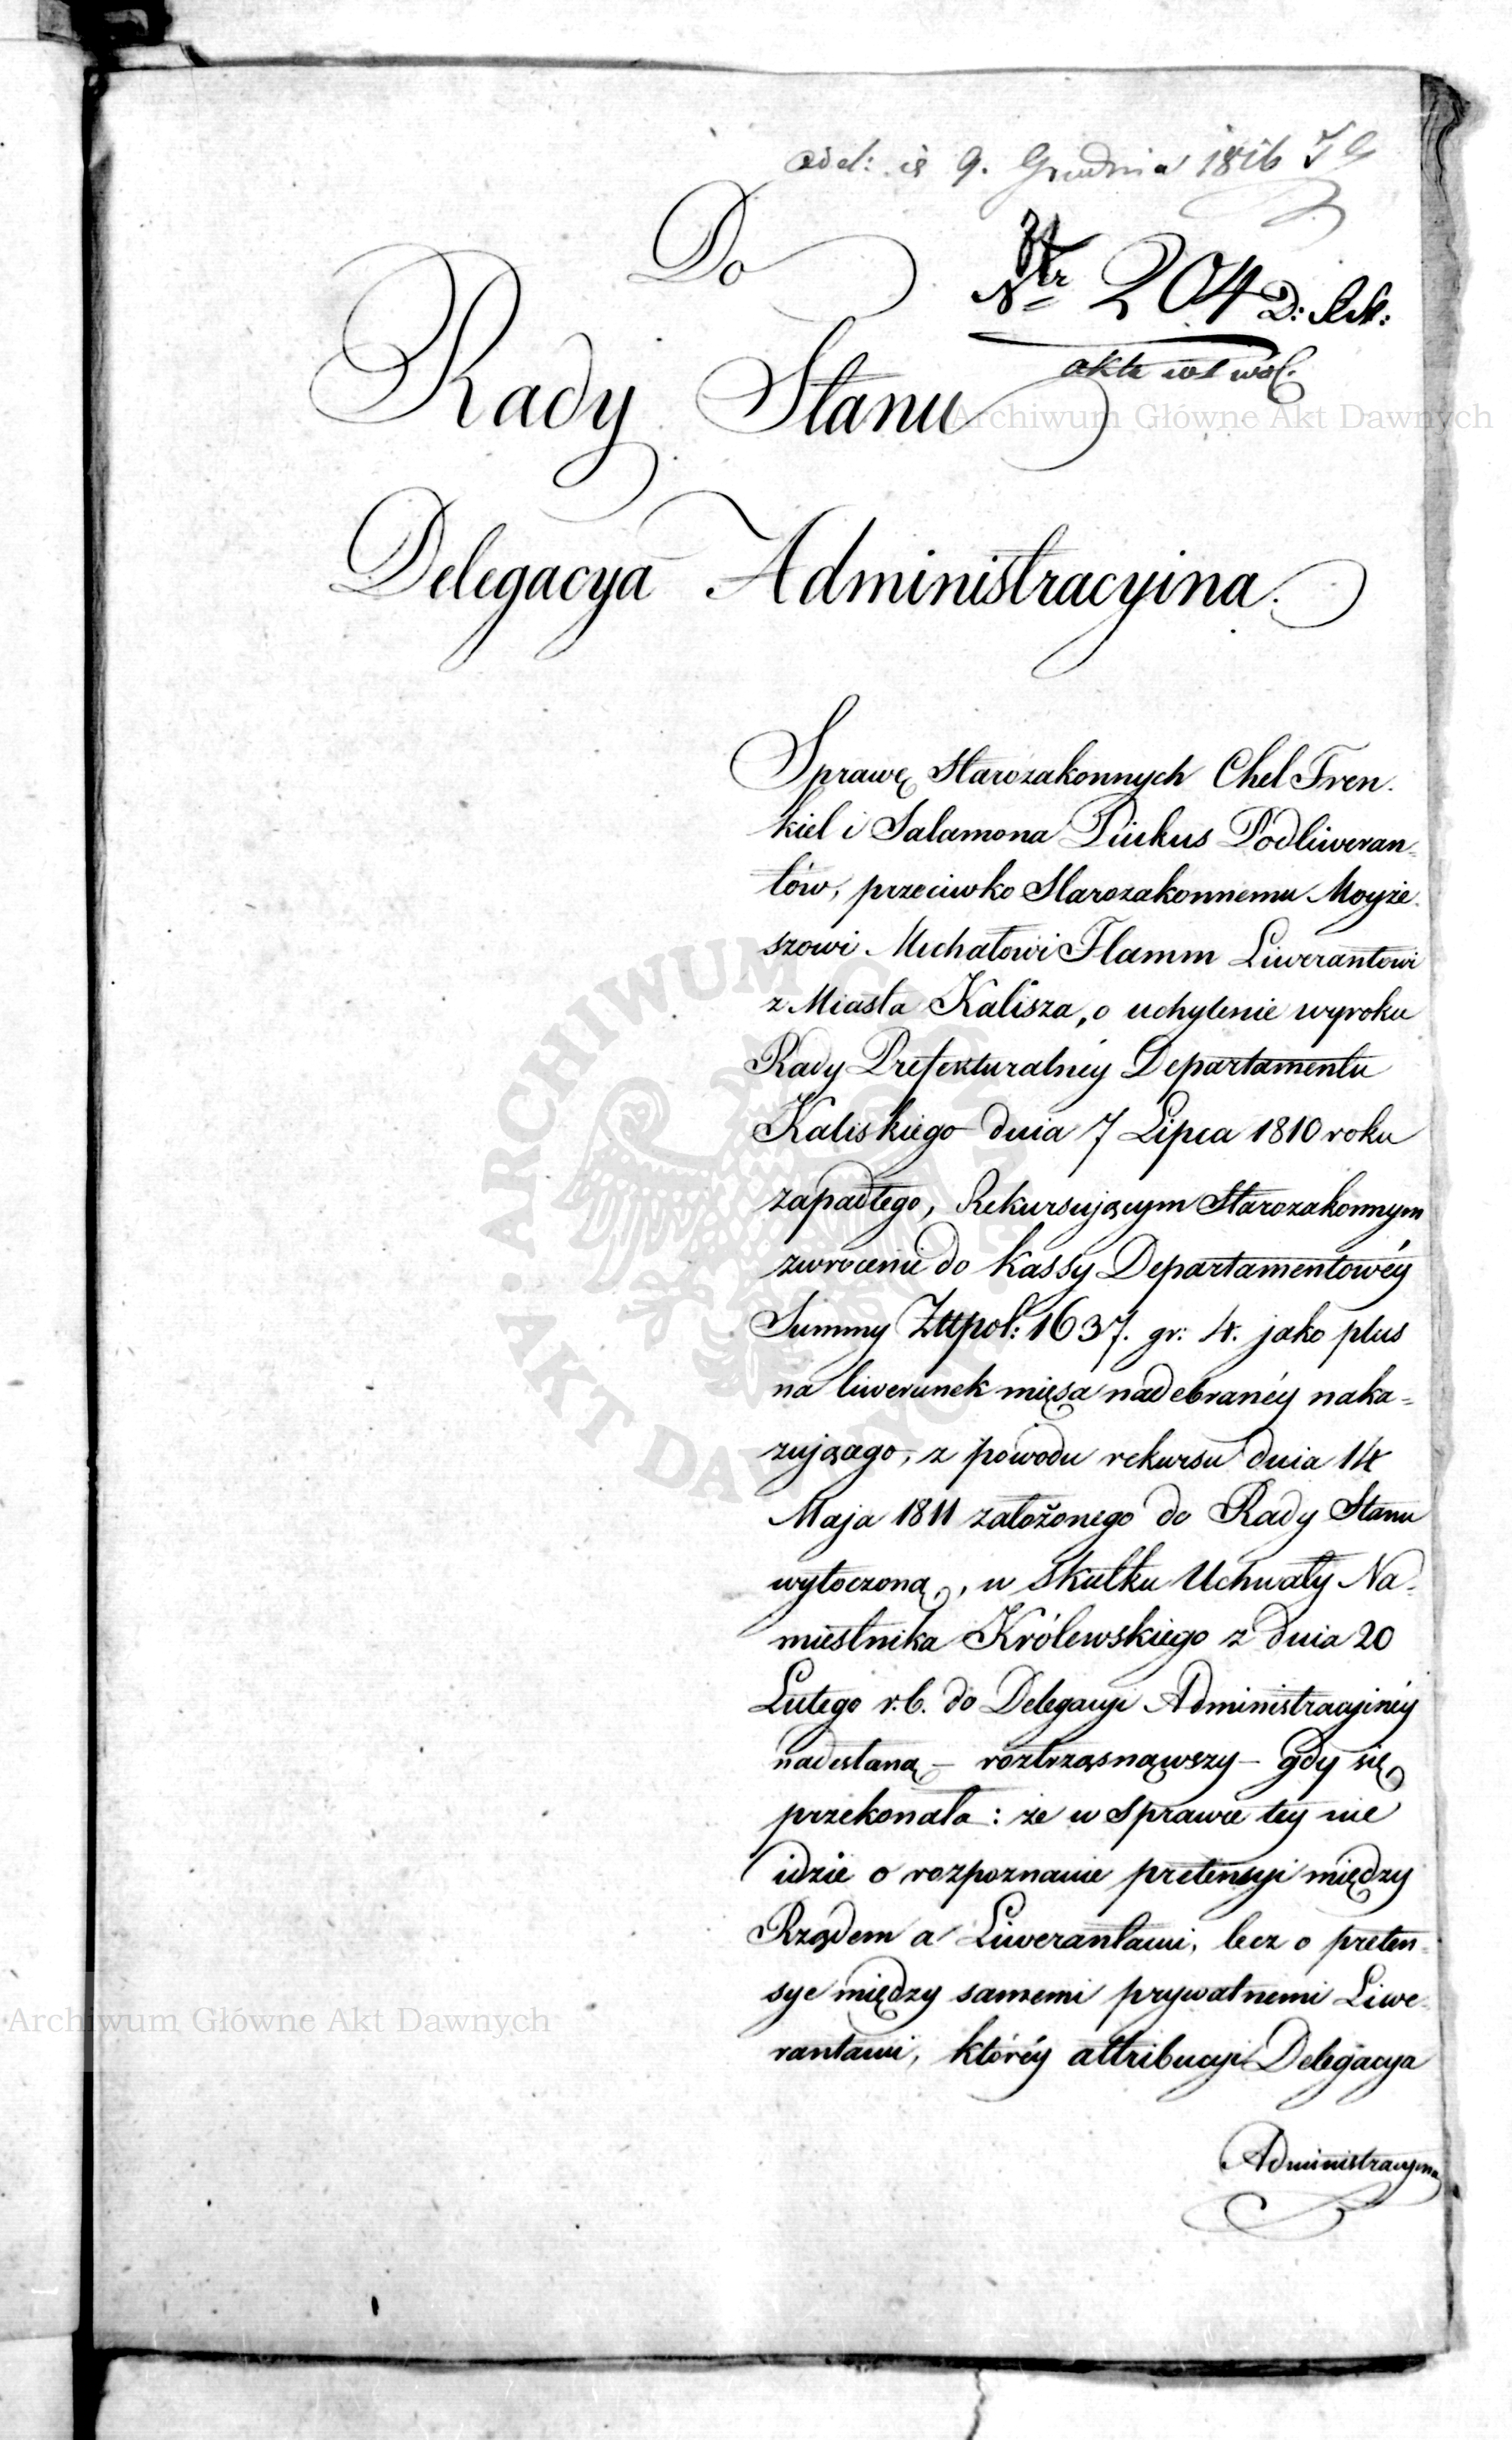 odd: is 9. Grudnia 1816 J G
Do
Ntr 204 D: Rek:
akta
Rady Stanu
Archiwum Główne Akt Dawnych
Delegacya Administracyina.
Sprawę Starozakonnych Chel Fren.
kiel i Salamona Pinkus Podliweran-
tów, przeciwko Starozakonnemu Moyże.
szowi Michałowi Flamm Liwerantowi
z Miasta Kalisza, o uchylenie wyroku
Rady Prefekturalnéy Departamentu
Kaliskiego dnia 7 Lipca 1810 roku
zapadłego, Rekursującym Starozakonnym
zwrócenie do kassy Departamentowéy
Summy Złtpol: 1637. gr: 4. jako plus
na liwerunek mięsa nadebranéy naka-
zującago, z powodu rekursu dnia 14
Maja 1811 założonego do Rady Stanu
wytoczoną, w skutku Uchwały Na-
miestnika Królewskiego z dnia 20
Lutego r.b. do Delegacyi Administracyinéy
nadesłaną – roztrząsnąwszy – gdy się
przekonała: że w sprawie tey nie
idzie o rozpoznanie pretensyi między
Rządem a Liwerantami, lecz o preten-
sye między samemi prywatnemi Liwe-
rantami, któréy attribucyi Delegacya
Administracyina
Archiwum Główne Akt Dawnych
ARCHIWUM GŁÓWNE AKT DAWNYCH